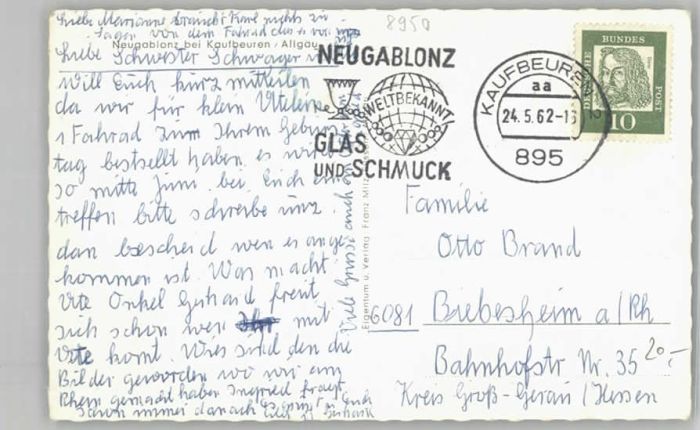 Liebe Marianne braucht Karl nichts zu
sagen von dem Fahrad
Neugablonz bei Kaufbeuren / Allgäu
Liebe Schwester Schwager
Will Euch kurz mitteilen
da wir für klein Utelein
1 Fahrad zum Ihrem Geburz
tag bestellt haben es wird
so mitte Juni bei Euch ein
treffen bitte schreibe unz
dan bescheid wen es ange
kommen ist. Was macht
Ute Onkel Gerhard freut
sich schon wen mit
Ute komt. Wies sind den die
Bilder geworden wo wir am
Rhein gemacht haben Ingried fragt
schon immer danach Euch
Gerhard
Viele Grüsse auch an
Eigentum u. Verlag Franz
8950
NEUGABLONZ
WELTBEKANNT
GLAS
UND SCHMUCK
KAUFBEUREN
aa
24.5.62-
895
DEUTSCHE
BUNDES
POST
10
Familie
Otto Brand
6081 Biebesheim a/Rh
Bahnhofstr Nr. 35
20.-
Kreis Groß-Gerau/Hessen